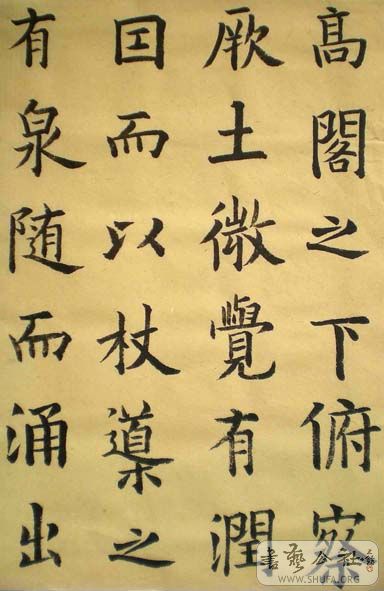 髙閣之下俯察
厥土微覺有潤
囙而以杖導之
有泉随而涌出
書藝公社
WWW.SHUFA.ORG